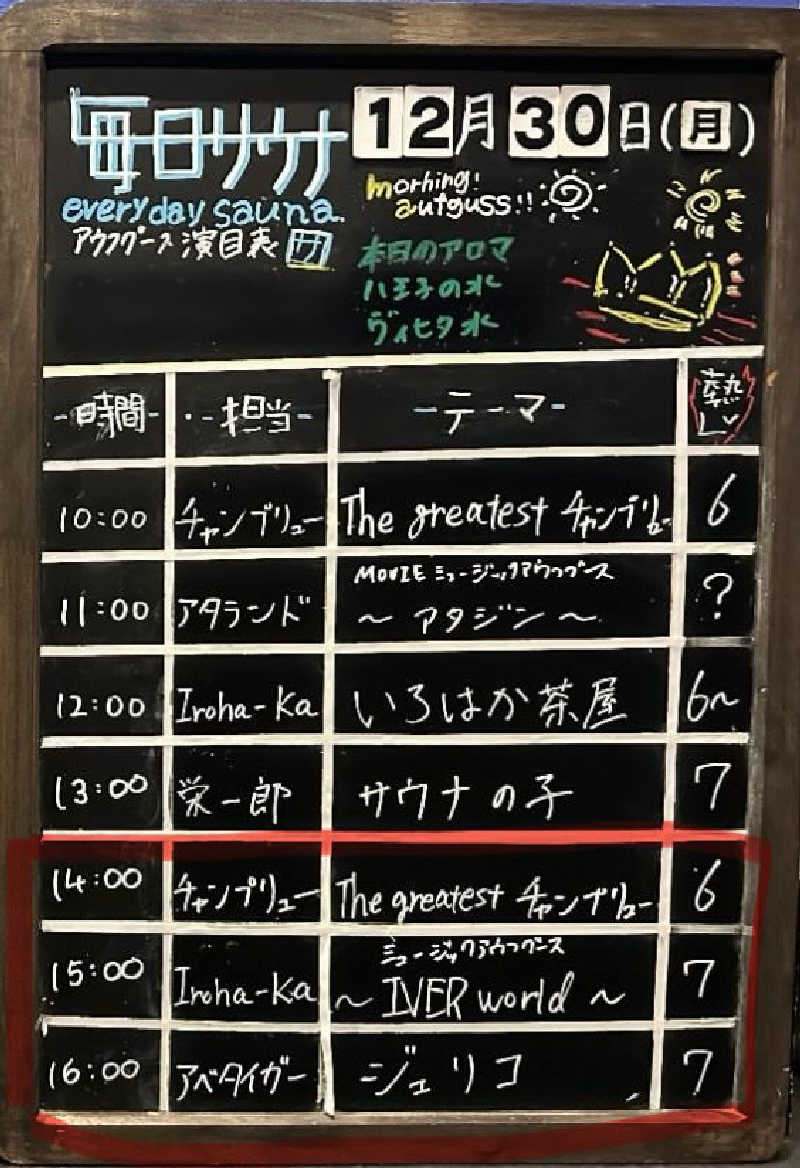 毎日サウナ
everyday sauna.
アウフグース演目表 サ
12月30日(月)
morning!
autguss!!
本日のアロマ
八王子の水
ヴィヒタ水
時間 担当 テーマ 熱レベ
10:00 チャンブリュー The greatest チャンブリュー 6
MOVIE ミュージックアウフグース
11:00 アタランド 〜 アタジン 〜 ?
12:00 Iroha-Ka いろはか茶屋 6〜
13:00 栄一郎 サウナの子 7
14:00 チャンブリュー The greatest チャンブリュー 6
ミュージックアウフグース
15:00 Iroha-Ka 〜 IVER world 〜 7
16:00 アベタイガー ジェリコ 7